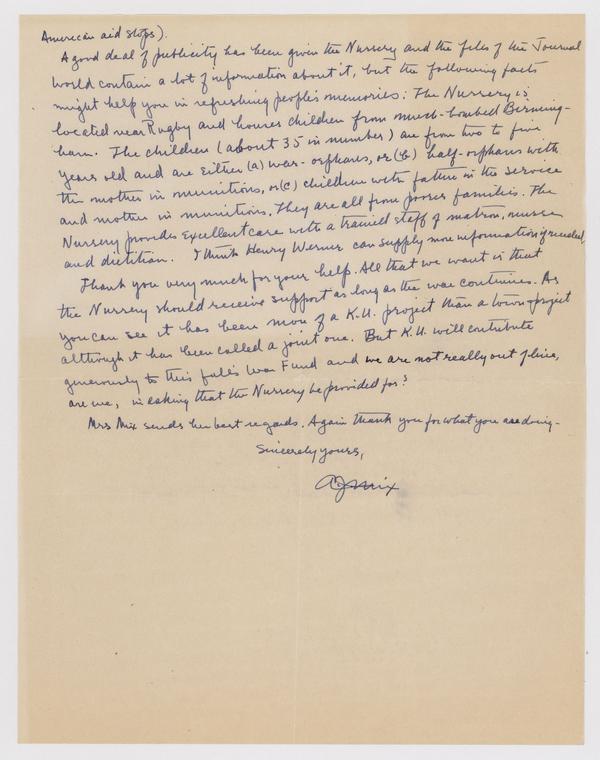 American aid stops).
A good deal of publicity has been given the Nursery and the files of the Journal
World contain a lot of information about it, but the following facts
might help you in refreshing people's memories: The Nursery is
located near Rugby and houses children from much-bombed Birming-
ham. The children (about 35 in number) are from two to five
years old and are either (a) war-orphans, or (b) half-orphans with
the mother in munitions, or (c) children with father in the service
and mother in munitions. They are all from poorer families. The
Nursery provides excellent care with a trained staff of matron, nurse
and dietitian. I think Henry Werner can supply more information if needed.
Thank you very much for your help. All that we want is that
the Nursery should receive support as long as the war continues. As
you can see it has been more of a K.U. project than a town project
although it has been called a joint one. But K.U. will contribute
generously to this fall's War Fund and we are not really out of line,
are we, in asking that the Nursery be provided for?
Mrs Mix sends her best regards. Again thank you for what you are doing-
Sincerely yours,
AJ Mix